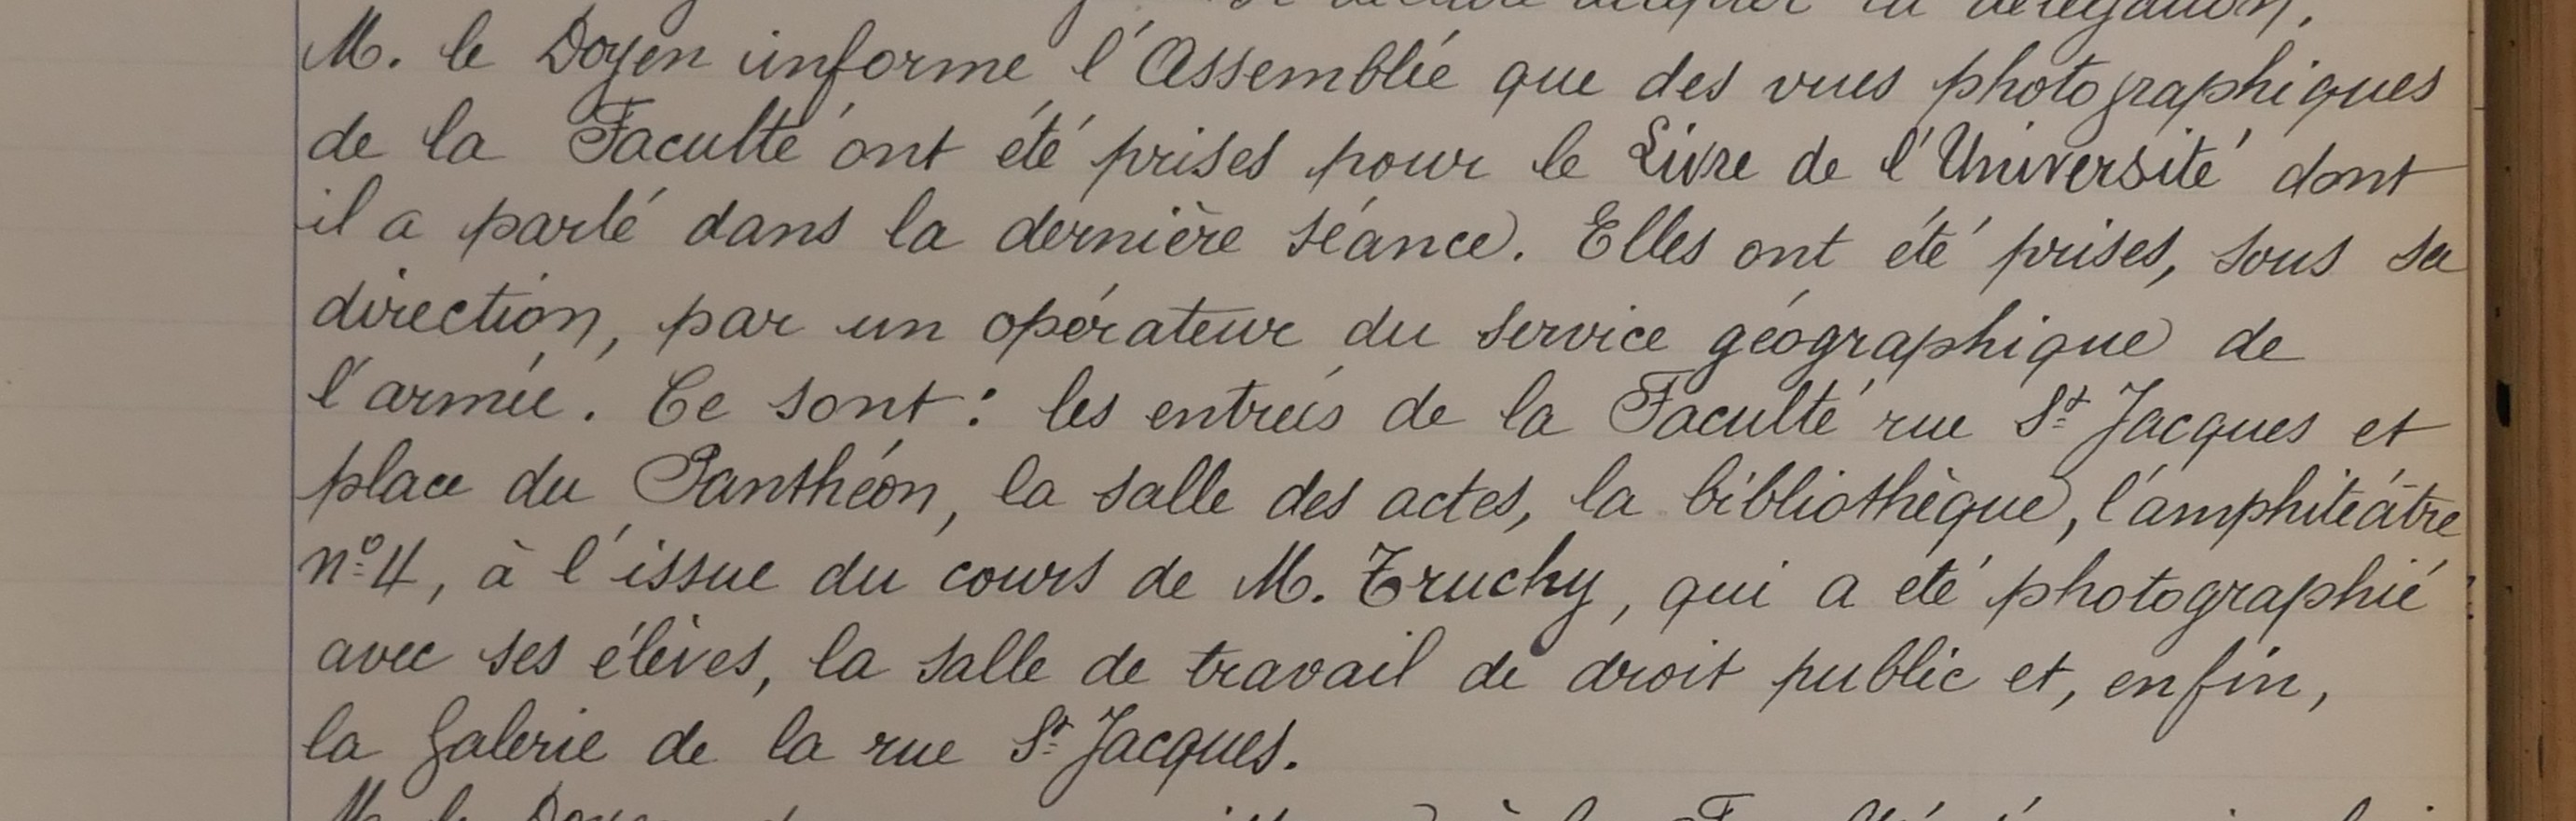 délégation.
M. le Doyen informe l'Assemblée que des vues photographiques
de la Faculté ont été prises pour le Livre de l'Université dont
il a parlé dans la dernière séance. Elles ont été prises, sous sa
direction, par un opérateur du service géographique de
l'armée. Ce sont : les entrées de la Faculté rue St Jacques et
place du Panthéon, la salle des actes, la bibliothèque, l'amphitéâtre
n° 4, à l'issue du cours de M. Truchy, qui a été photographié
avec ses élèves, la salle de travail de droit public et, enfin,
la Galerie de la rue St Jacques.
M. le Doyen